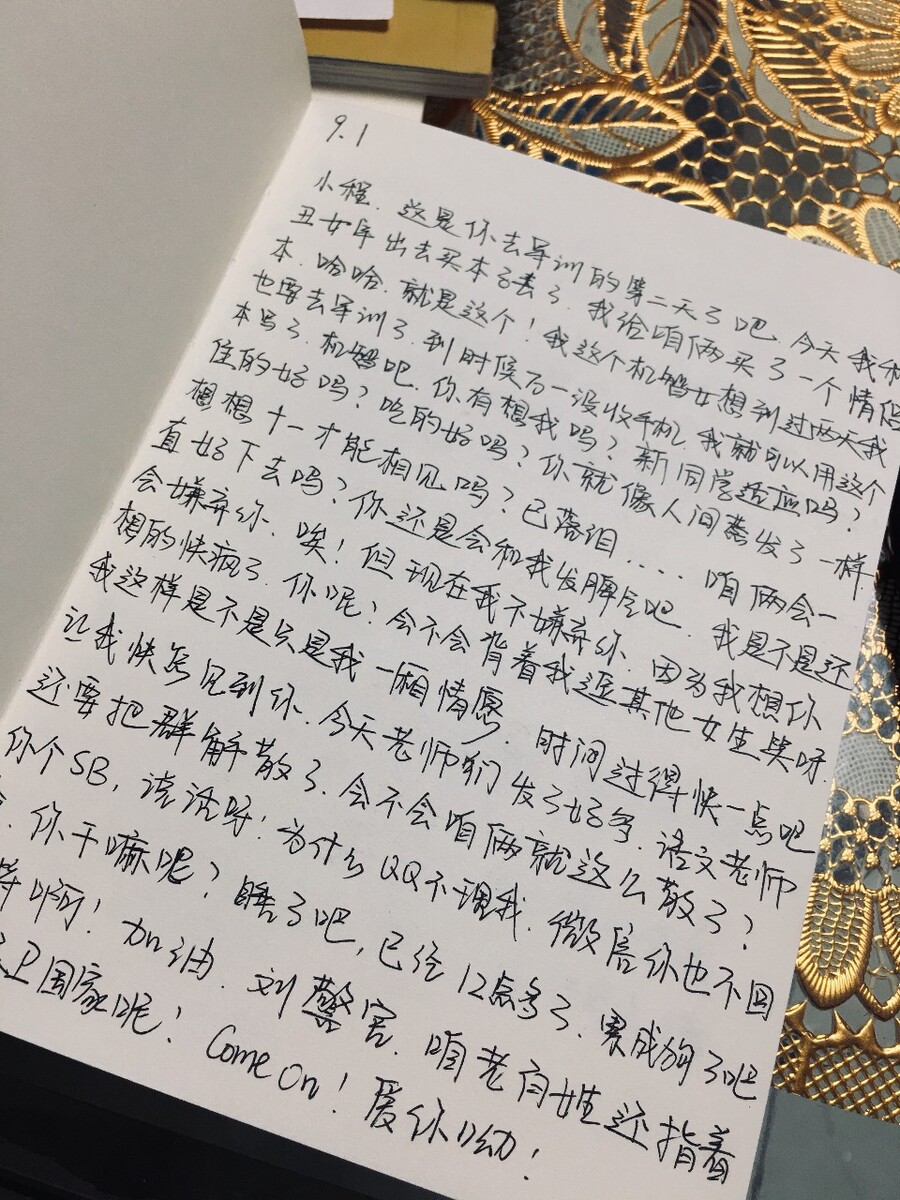 9.1
小程.这是你去军训的第二天了吧.今天我和
丑女军出去买本子去了.我给咱俩买了一个情侣
本.哈哈.就是这个!我这个机智女想到过两天我
也要去军训了.到时候万一没收手机.我就可以用这个
本写了.机智吧.你有想我吗?新同学适应吗?
住的好吗?吃的好吗?你就像人间蒸发了一样.
想想十一才能相见吗?已落泪....咱俩会一
直好下去吗?你还是会和我发脾气吧.我是不是还
会嫌弃你.唉!但现在我不嫌弃你.因为我想你
想的快疯了.你呢?会不会背着我逗其他女生笑呀.
我这样是不是只是我一厢情愿.时间过得快一点吧
让我快点见到你.今天老师们发了好多.语文老师
还要把群解散了.会不会咱俩就这么散了?
你个SB,说话呀!为什么QQ不理我.微信你也不回
.你干嘛呢?睡了吧,已经12点多了.累成狗了吧
啊!加油.刘警官.咱老百姓还指着
卫国家呢!Come On!爱你呦!